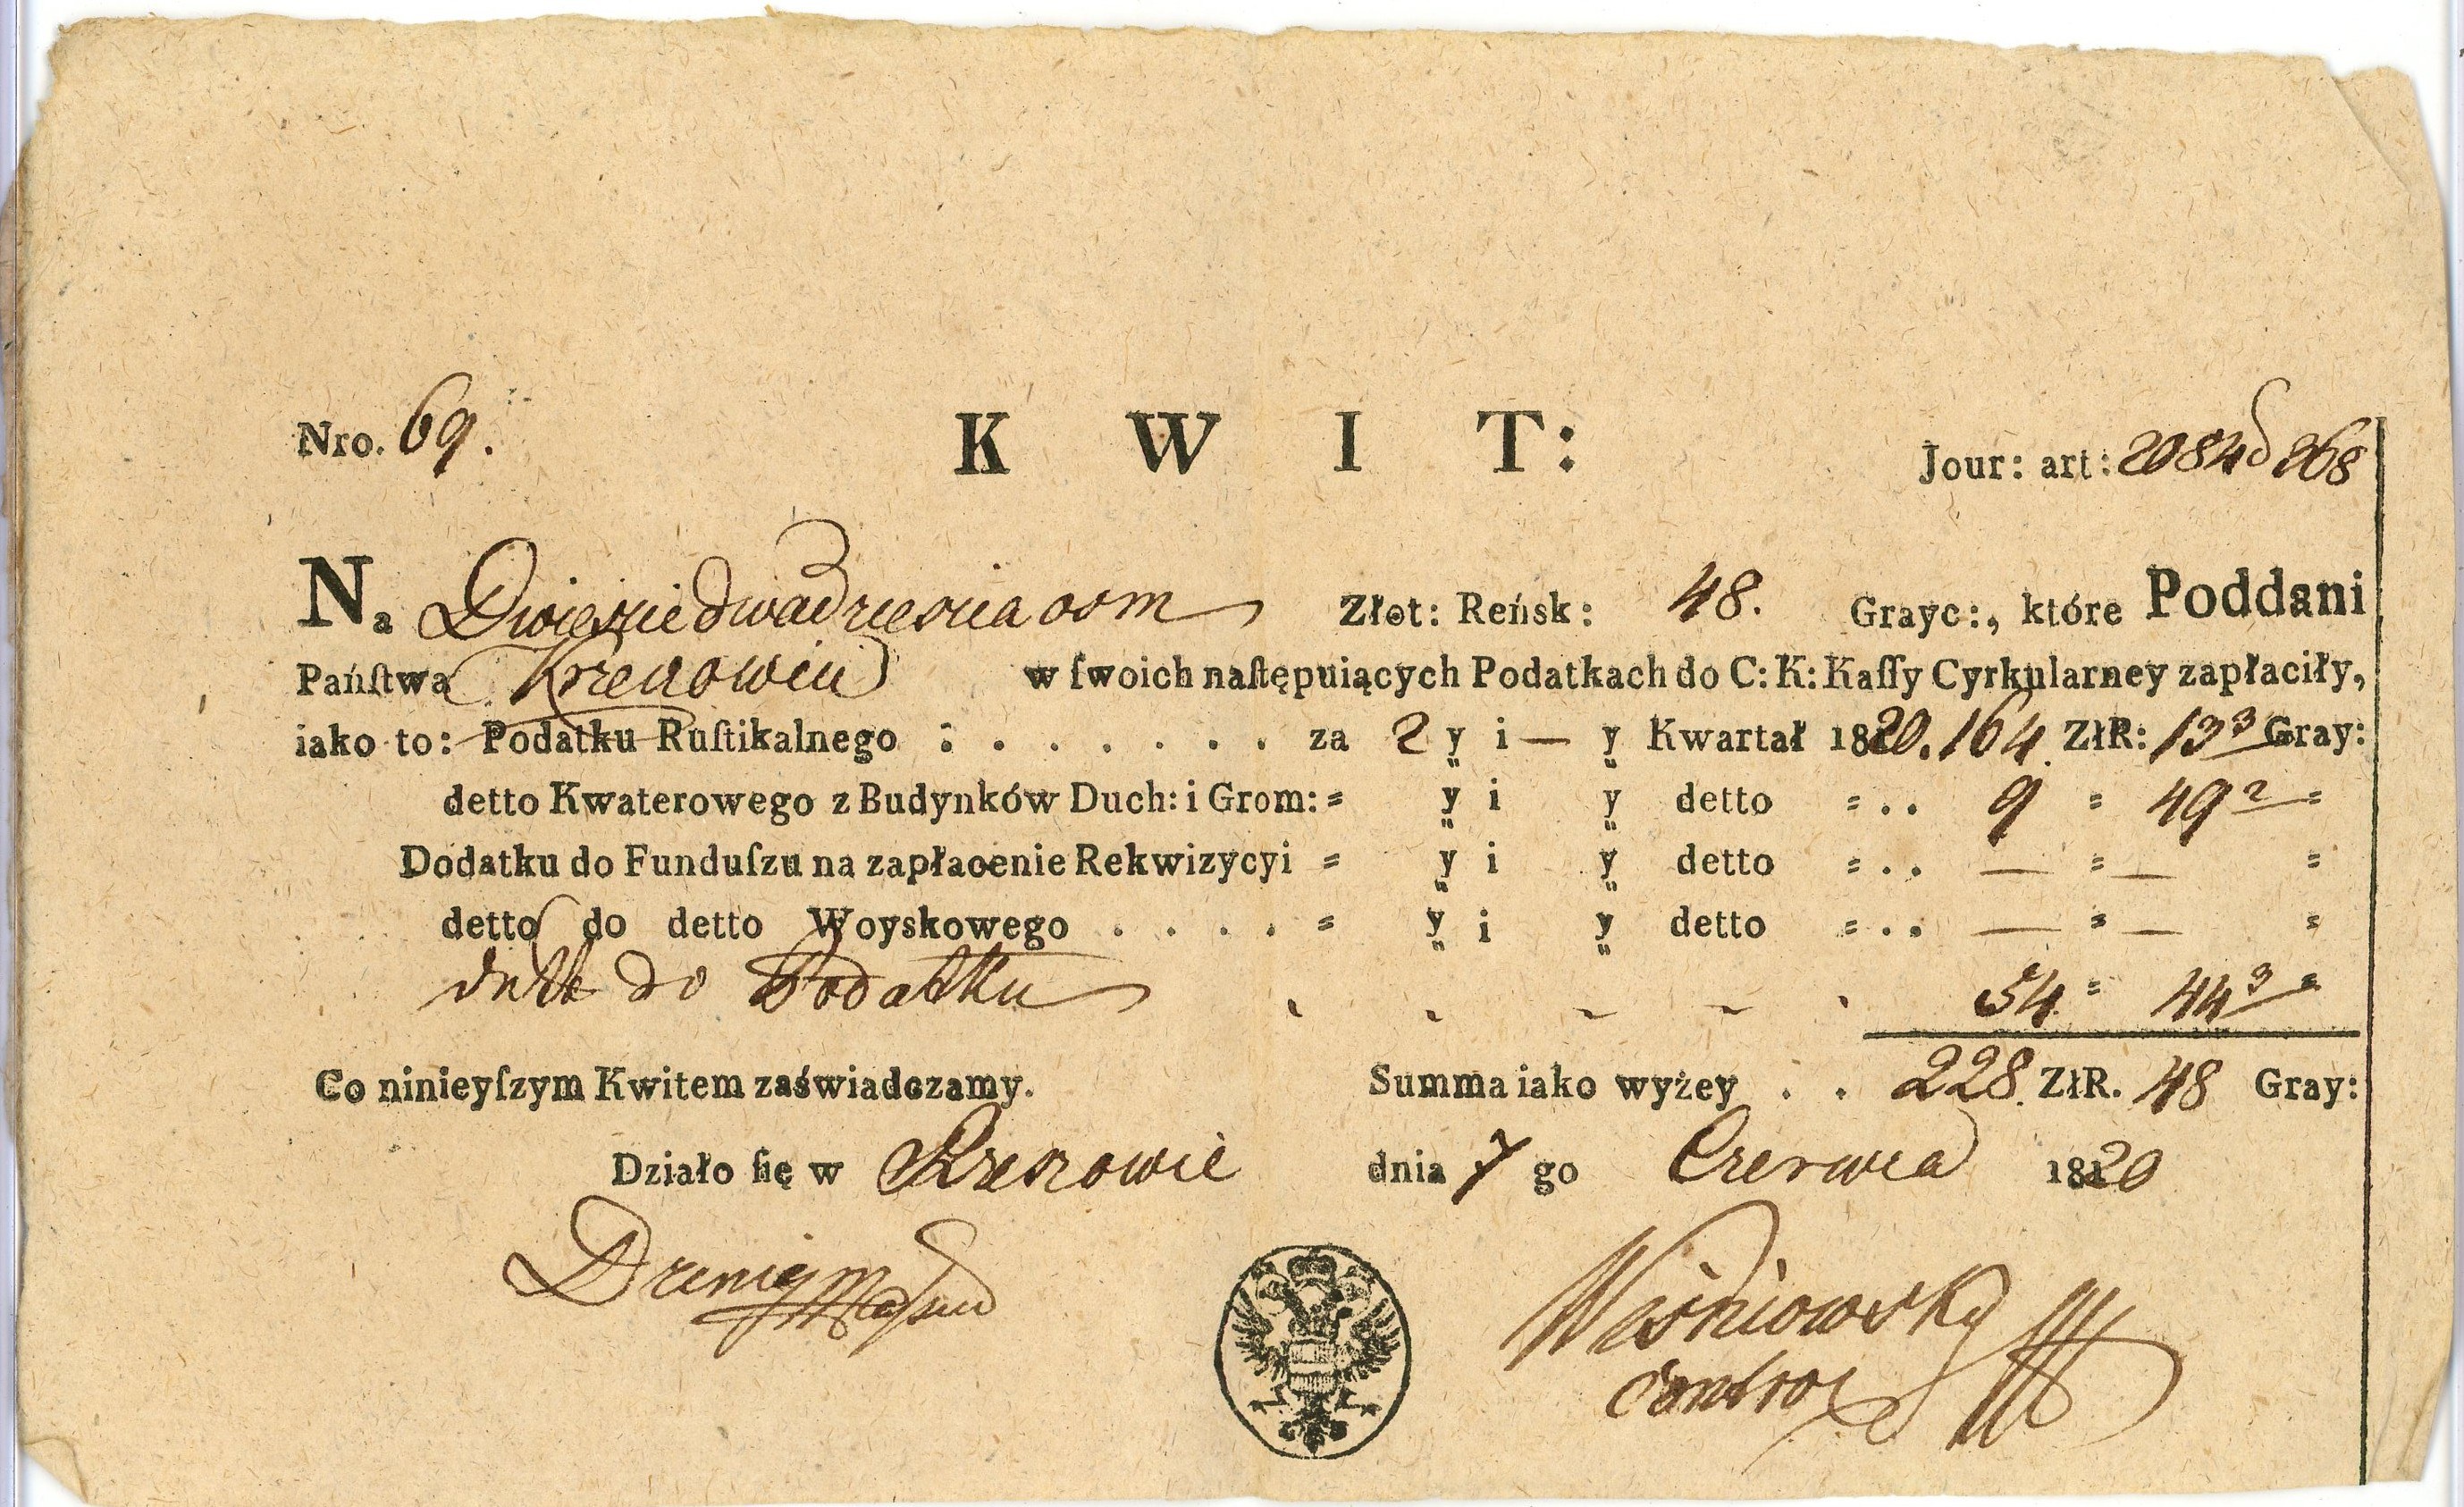 Nro. 69. K W I T: Jour: art: 2084 268
Na Dwieście dwadzieścia osm Złot: Reńsk: 48. Grayc:, które Poddani
Pańſtwa w ſwoich naſtępuiących Podatkach do C: K: Kaſſy Cyrkularney zapłaciły,
iako to: Podatku Ruſtikalnego : . . . . . . . za 2 y i — y Kwartał 1820. 164 ZłR: 13 3 Gray:
detto Kwaterowego z Budynków Duch: i Grom: = y i y detto = . . 9 = 49 2 =
Dodatku do Funduſzu na zapłacenie Rekwizycyi = y i y detto = . . — = — =
detto do detto Woyskowego . . . . = y i y detto = . . — = — =
dtto do Podatku 54 = 44 3 =
Co ninieyſzym Kwitem zaświadczamy. Summa iako wyżey . . 228. ZłR. 48 Gray:
Działo ſię w Rzeszowie dnia 7 go Czerwca 1820
Wiśniowsky
Control